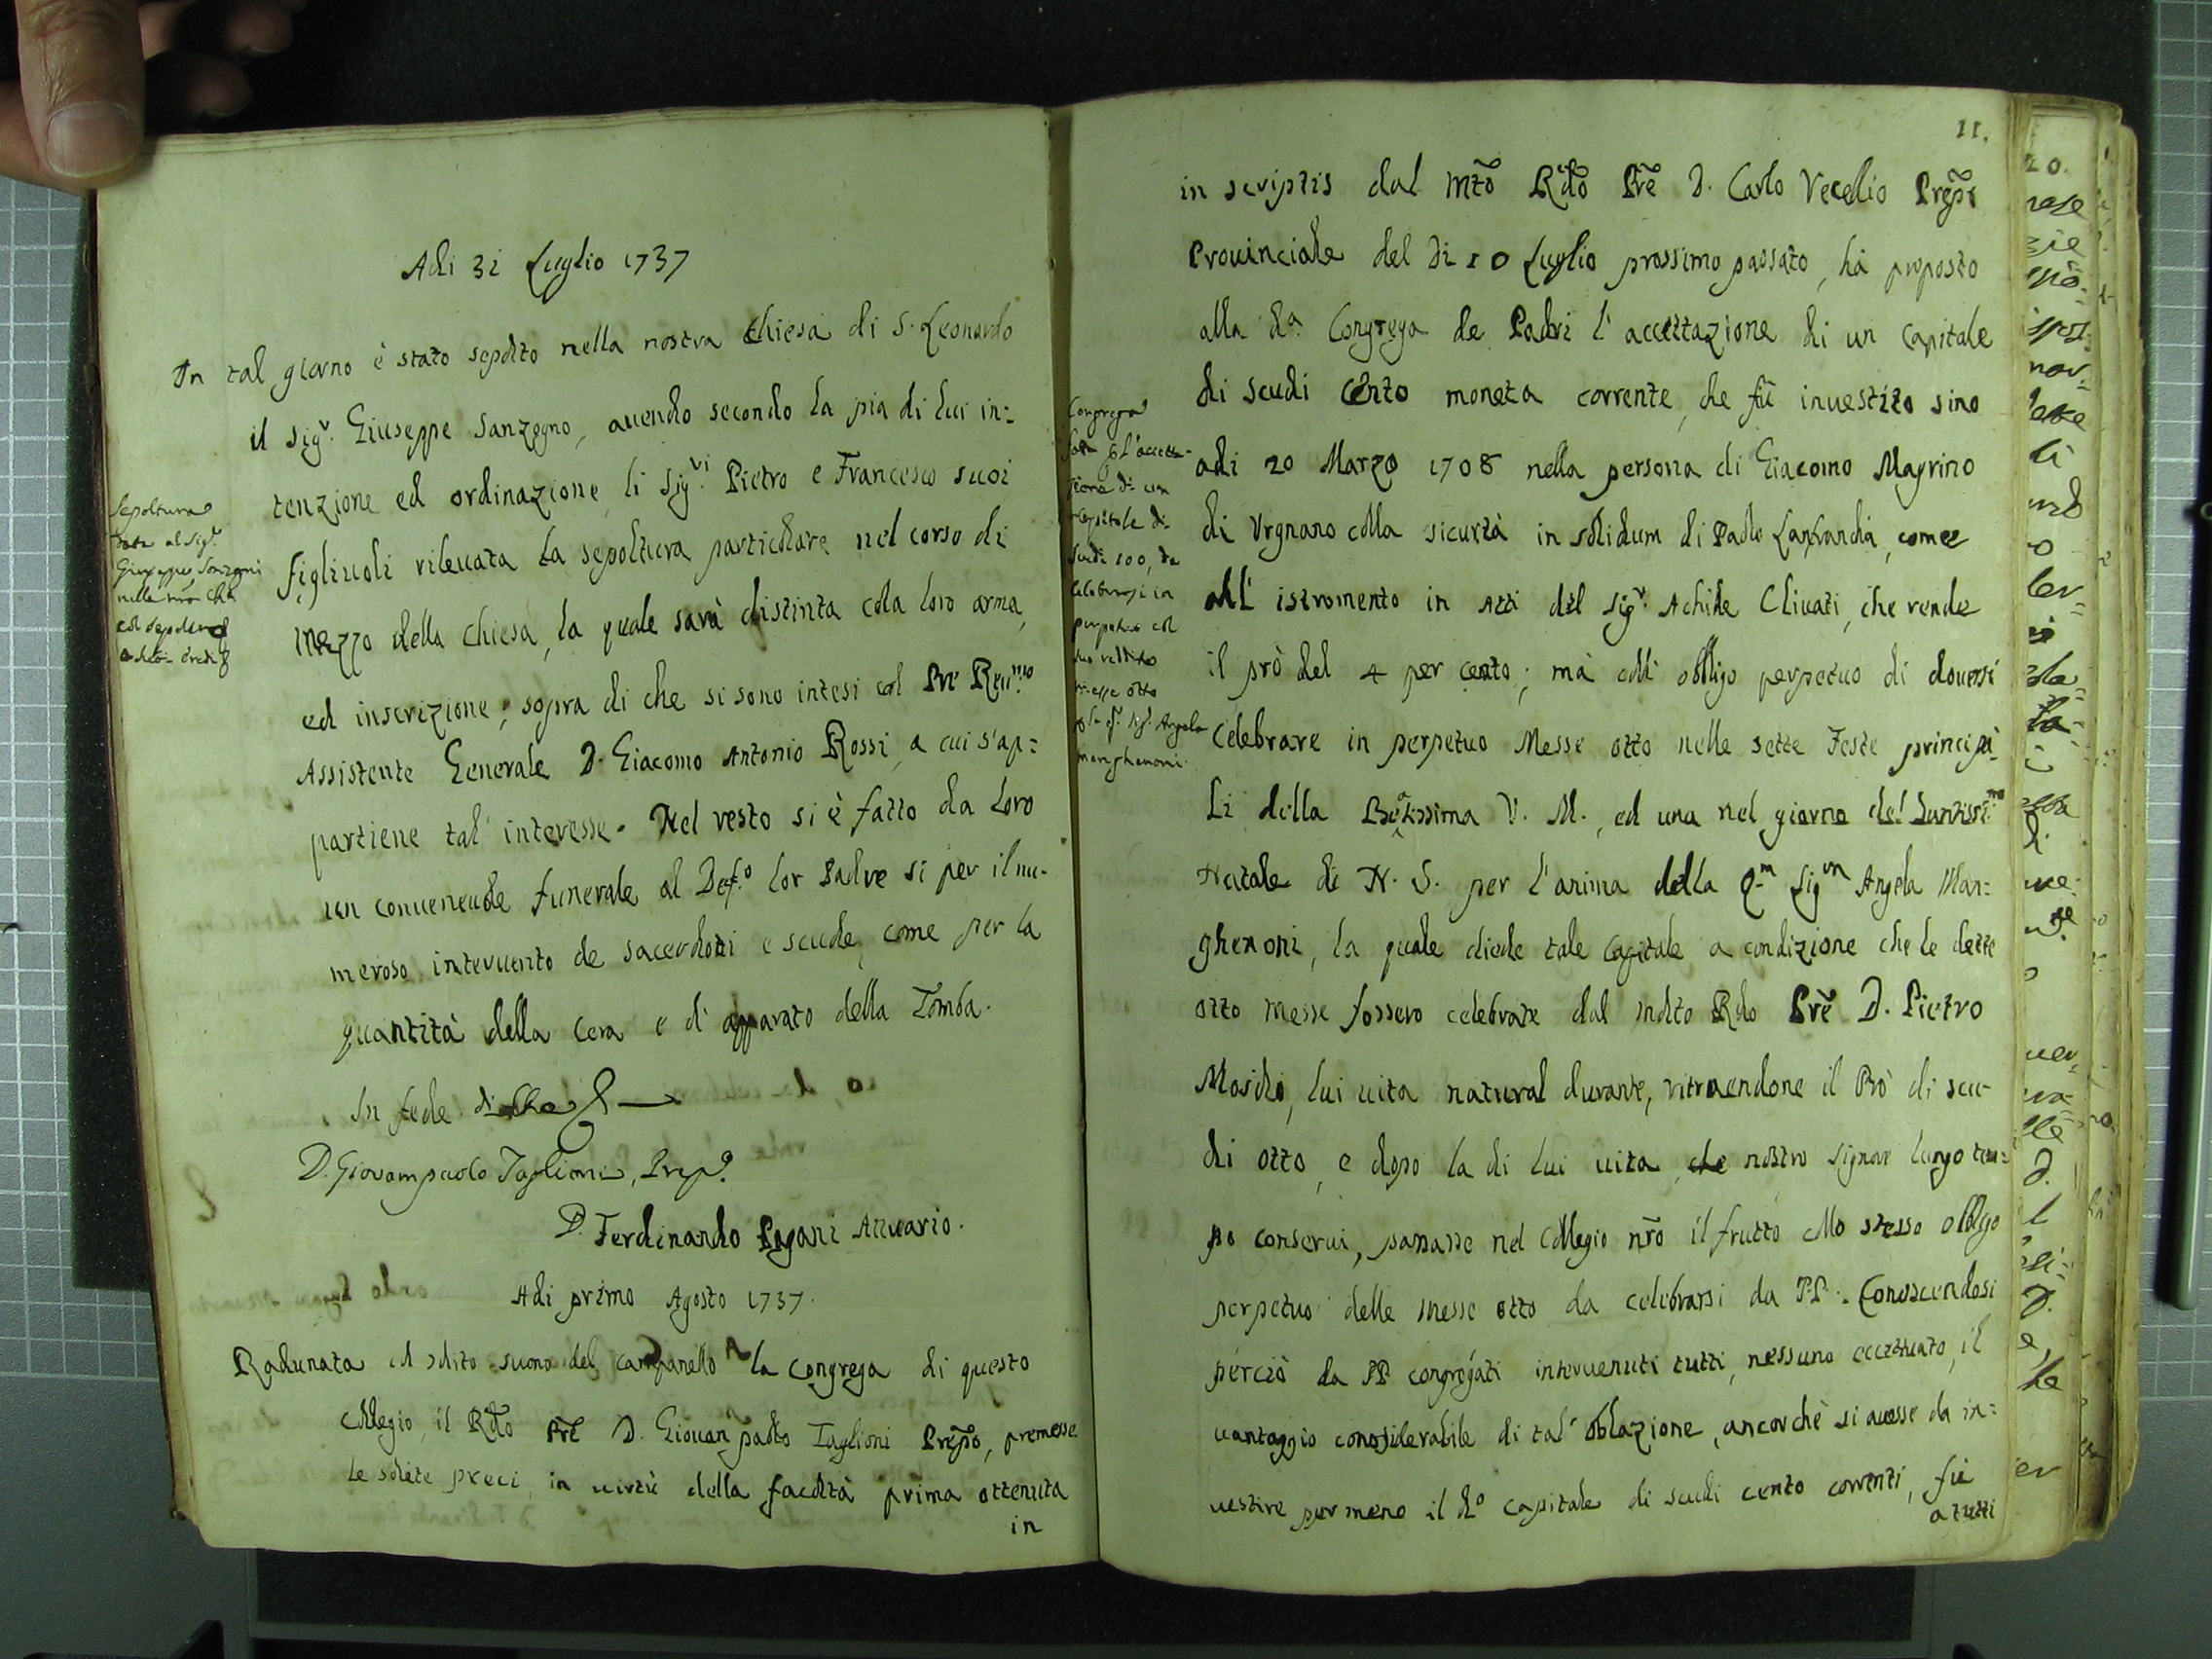 Adi 31 Luglio 1737
In tal giorno è stato sepolto nella nostra Chiesa di S. Leonardo
il Sigr. Giuseppe Sanzogno, auendo secondo la pia di lui in=
tenzione ed ordinazione li Sigri Pietro e Francesco suoi
figliuoli rileuata la sepoltura particolare nel corso di
mezzo della Chiesa, la quale sarà distinta colla loro arma,
ed inscrizione; sopra di che si sono intesi col Pre Reumo
Assistente Generale D. Giacomo Antonio Rossi, a cui s'ap=
partiene tal' interesse. Nel resto si è fatto da loro
un conueneuole funerale al Defo lor Padre si per il nu-
meroso interuento de sacerdoti e scuole, come per la
quantità della Cera e d' apparato della Tomba.
In fede di che
D. Giovampaolo Taglioni, Prepo.
D. Ferdinando Pagani Attuario.
Sepoltura
data al Sigr
Giuseppe Sanzogni
nella nra Cha
Adi primo Agosto 1737.
Radunata al solito suono del campanello la Congrega di questo
Collegio, il Rdo Pre D. Giouan paolo Taglioni Prepo, premesse
le solite preci, in uirtù della facoltà prima ottenuta
in
11.
in scriptis dal Mto Rdo Pre D. Carlo Vecelio Prepo
Prouinciale del di 10 Luglio prossimo passato, hà proposto
alla da Congrega de Padri l' accettazione di un Capitale
di scudi Cento moneta corrente, che fù inuestito sino
adi 20 Marzo 1708 nella persona di Giacomo Magrino
di Vrgnano colla sicurtà in solidum di Paolo Lanfranchi, come
all' istromento in Atti del Sigr. Achille Cliuati, che rende
il prò del 4 per cento; mà coll' obbligo perpetuo di douersi
Celebrare in perpetuo Messe otto nelle sette Feste principa=
li della Beatissima V. M., ed una nel giorno del Santissimo
Natale di N. S. per l'anima della Qm Sigra Angela Mar=
ghenoni, la quale diede tale Capitale a condizione che le dette
otto Messe fossero celebrate dal molto Rdo Pre D. Pietro
Mosclò, lui uita natural durante, ritraendone il Prò di scu-
di otto, e dopo la di lui uita, che nostro Signore lungo tem=
po conserui, passasse nel Collegio nro il frutto collo stesso obbligo
perpetuo delle messe otto da celebrarsi da PP. Conoscendosi
perciò da PP congregati interuenuti tutti, nessuno eccettuato, il
uantaggio considerabile di tal' oblazione, ancorchè si auesse da in=
uestire per meno il do capitale di scudi cento correnti, fù
a tutti
Congrega
fatta p l'accetta-
zione di un
capitale di
scudi 100, da
celebrarsi in
perpetuo col
suo reddito
messe otto
p la qm Sigra Angela
Marghenoni